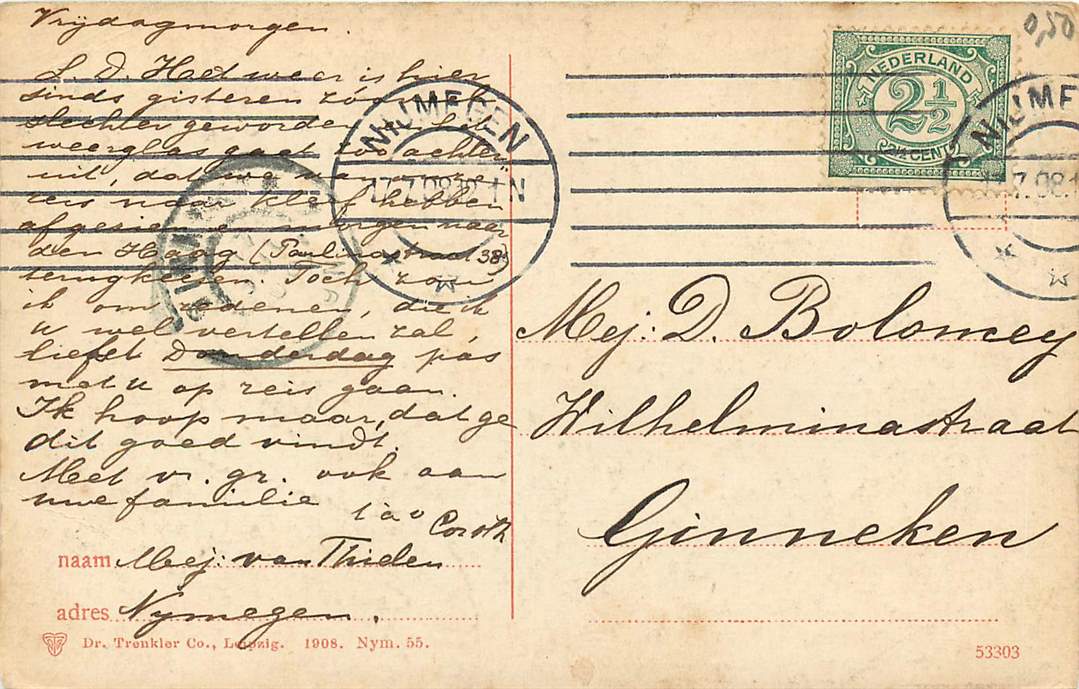 Vrijdagmorgen.
L. D. Het weer is hier
sinds gisteren zóó
slechter geworden
weerglas gaat zoo achter-
uit, dat we van onze
reis naar Kleef hebben
afgezien en morgen naar
den Haag (Paulinastraat 38)
terugkeeren. Toch zou
ik om redenen, die ik
u wel vertellen zal,
liefst Donderdag pas
met u op reis gaan.
Ik hoop maar, dat ge
dit goed vindt.
Met vr. gr. ook aan
uwe familie
naam Mej. van Thielen
adres Nymegen.
Dr. Trenkler Co., Leipzig. 1908. Nym. 55.
0,50
NEDERLAND
2½
2½ CENT
NIJMEGEN
17.7.08
NIJMEGEN
7.08
Mej: D. Bolomey
Wilhelminastraat
Ginneken
53303